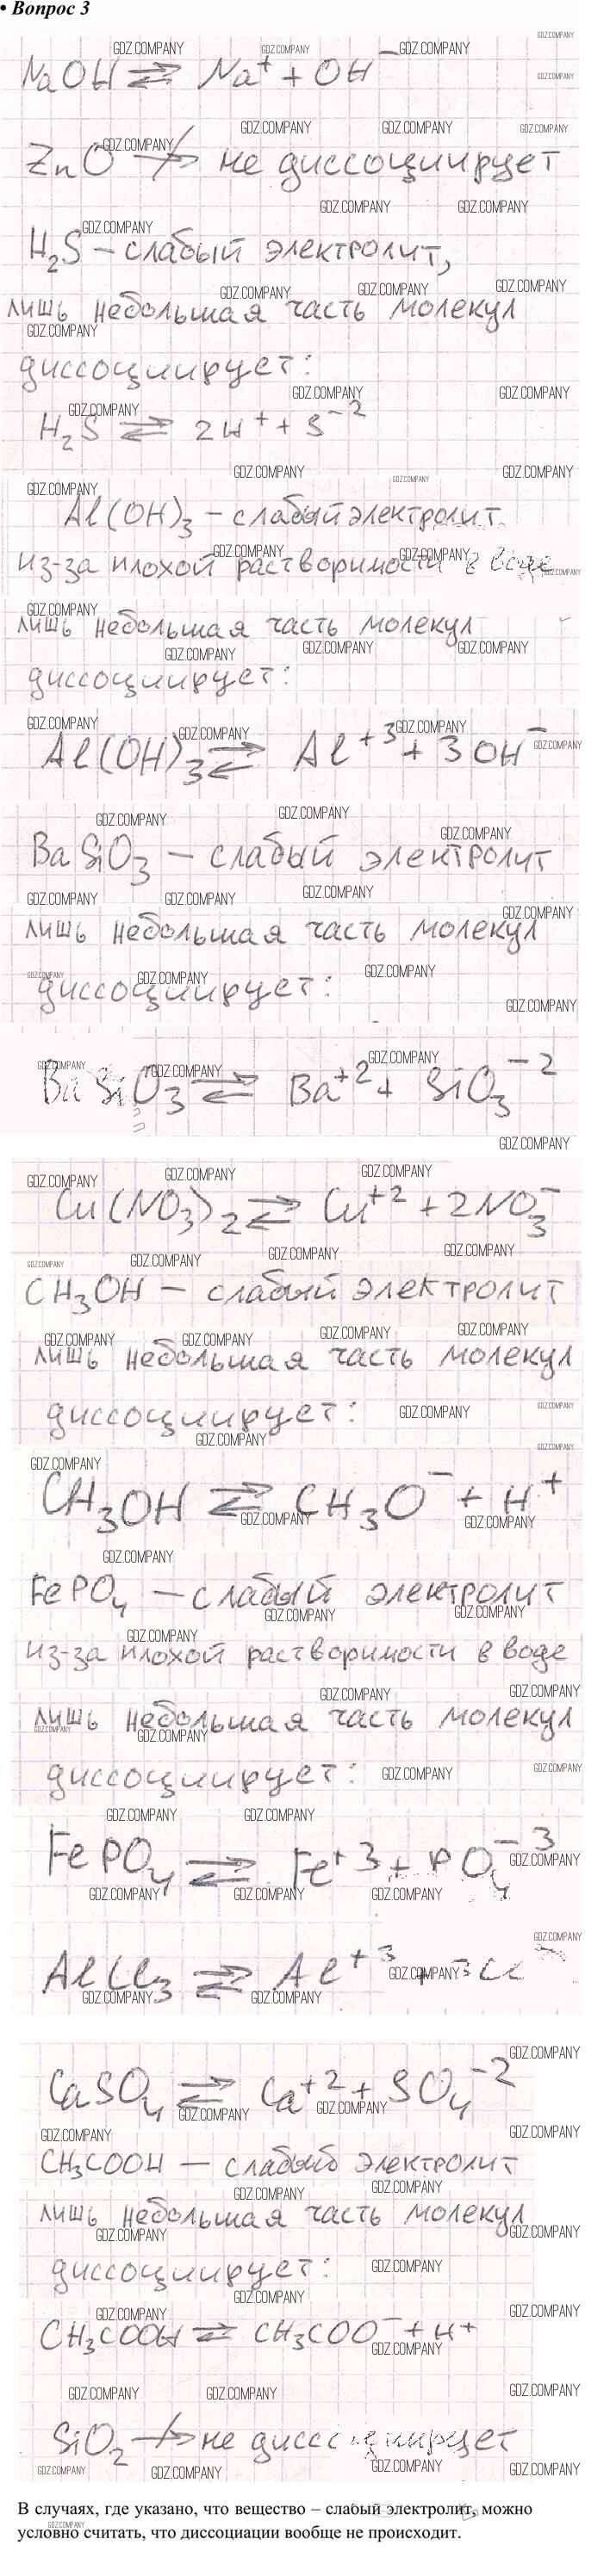 • Вопрос 3
NaOH ⇄ Na⁺ + OH⁻
ZnO ↛ не диссоциирует
H₂S – слабый электролит,
лишь небольшая часть молекул
диссоциирует:
H₂S ⇄ 2H⁺ + S⁻²
Al(OH)₃ – слабый электролит
из-за плохой растворимости в воде
лишь небольшая часть молекул
диссоциирует:
Al(OH)₃ ⇄ Al⁺³ + 3OH⁻
BaSiO₃ – слабый электролит
лишь небольшая часть молекул
диссоциирует:
BaSiO₃ ⇄ Ba⁺² + SiO₃⁻²
Cu(NO₃)₂ ⇄ Cu⁺² + 2NO₃⁻
CH₃OH – слабый электролит
лишь небольшая часть молекул
диссоциирует:
CH₃OH ⇄ CH₃O⁻ + H⁺
FePO₄ – слабый электролит
из-за плохой растворимости в воде
лишь небольшая часть молекул
диссоциирует:
FePO₄ ⇄ Fe⁺³ + PO₄⁻³
AlCl₃ ⇄ Al⁺³ + 3Cl⁻
CaSO₄ ⇄ Ca⁺² + SO₄⁻²
CH₃COOH – слабый электролит
лишь небольшая часть молекул
диссоциирует:
CH₃COOH ⇄ CH₃COO⁻ + H⁺
SiO₂ ↛ не диссоциирует
В случаях, где указано, что вещество – слабый электролит, можно
условно считать, что диссоциации вообще не происходит.
GDZ.COMPANY